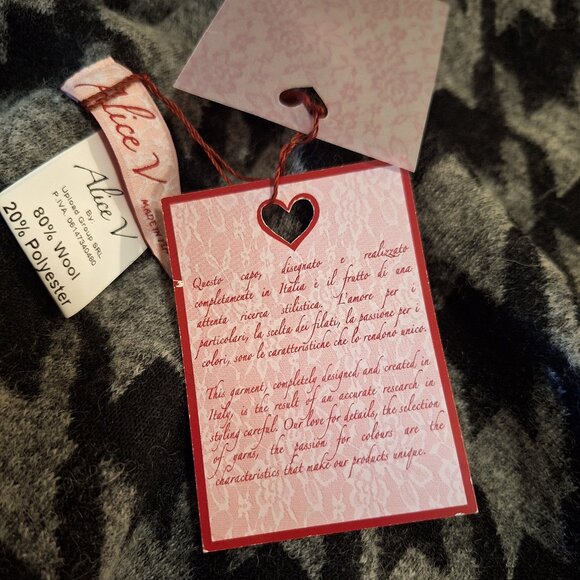 Alice V
MADE IN
Alice V
By:
Upload Group SRL
P.IVA. 06147340480
80% Wool
20% Polyester
Questo capo, disegnato e realizzato
completamente in Italia è il frutto di una
attenta ricerca stilistica. L'amore per i
particolari, la scelta dei filati, la passione per i
colori, sono le caratteristiche che lo rendono unico.
This garment, completely designed and created in
Italy, is the result of an accurate research in
styling careful. Our love for details, the selection
of yarns, the passion for colours are the
characteristics that make our products unique.